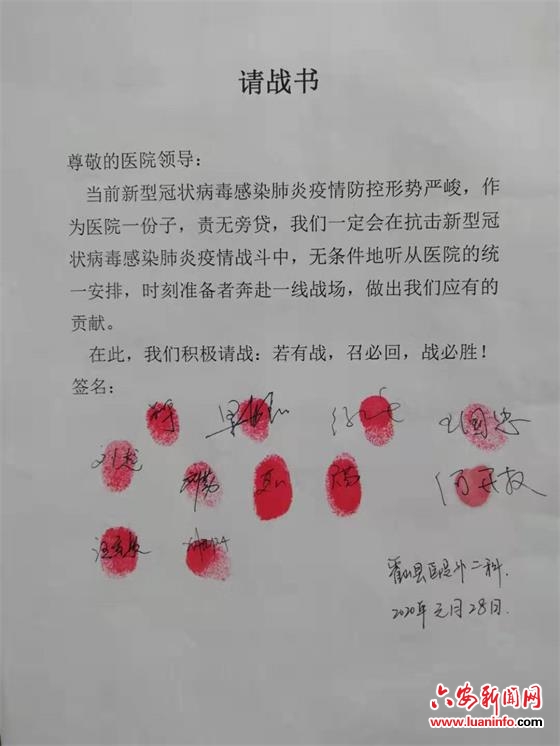 请战书
尊敬的医院领导：
当前新型冠状病毒感染肺炎疫情防控形势严峻，作
为医院一份子，责无旁贷，我们一定会在抗击新型冠
状病毒感染肺炎疫情战斗中，无条件地听从医院的统
一安排，时刻准备者奔赴一线战场，做出我们应有的
贡献。
在此，我们积极请战：若有战，召必回，战必胜！
签名：
王国忠
刘志
霍山县医院外二科.
2020年元月28日.
六安新闻网
www.luaninfo.com